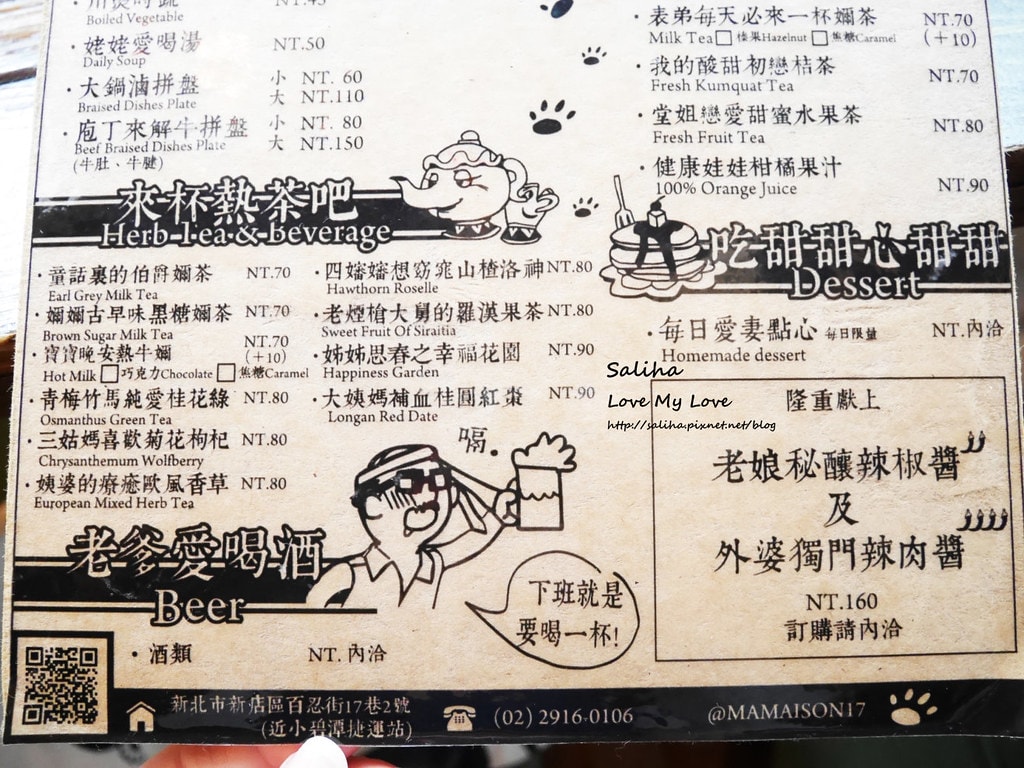 Boiled Vegetable
NT.45
姥姥愛喝湯 NT.50
Daily Soup
大鍋滷拼盤 小 NT. 60
Braised Dishes Plate 大 NT.110
庖丁來解牛拼盤 小 NT. 80
Beef Braised Dishes Plate 大 NT.150
(牛肚、牛腱)
表弟每天必來一杯嬭茶 NT.70
Milk Tea □ 榛果Hazelnut □ 焦糖Caramel (+10)
我的酸甜初戀桔茶 NT.70
Fresh Kumquat Tea
堂姐戀愛甜蜜水果茶 NT.80
Fresh Fruit Tea
健康娃娃柑橘果汁 NT.90
100% Orange Juice
來杯熱茶吧
Herb Tea & Beverage
童話裏的伯爵嬭茶 NT.70
Earl Grey Milk Tea
嬭嬭古早味黑糖嬭茶 NT.70
Brown Sugar Milk Tea
寶寶晚安熱牛嬭 NT.70
(+10)
Hot Milk □ 巧克力Chocolate □ 焦糖Caramel
青梅竹馬純愛桂花綠 NT.80
Osmanthus Green Tea
三姑媽喜歡菊花枸杞 NT.80
Chrysanthemum Wolfberry
姨婆的療癒歐風香草 NT.80
European Mixed Herb Tea
四嬸嬸想窈窕山楂洛神 NT.80
Hawthorn Roselle
老煙槍大舅的羅漢果茶 NT.80
Sweet Fruit Of Siraitia
姊姊思春之幸福花園 NT.90
Happiness Garden
大姨媽補血桂圓紅棗 NT.90
Longan Red Date
吃甜甜心甜甜
Dessert
每日愛妻點心 每日限量 NT.內洽
Homemade dessert
Saliha
Love My Love
http://saliha.pixnet.net/blog
隆重獻上
老娘秘釀辣椒醬
及
外婆獨門辣肉醬
NT.160
訂購請內洽
嗝.
老爹愛喝酒
Beer
下班就是
要喝一杯!
酒類 NT. 內洽
新北市新店區百忍街17巷2號
(近小碧潭捷運站)
(02) 2916-0106
@MAMAISON17